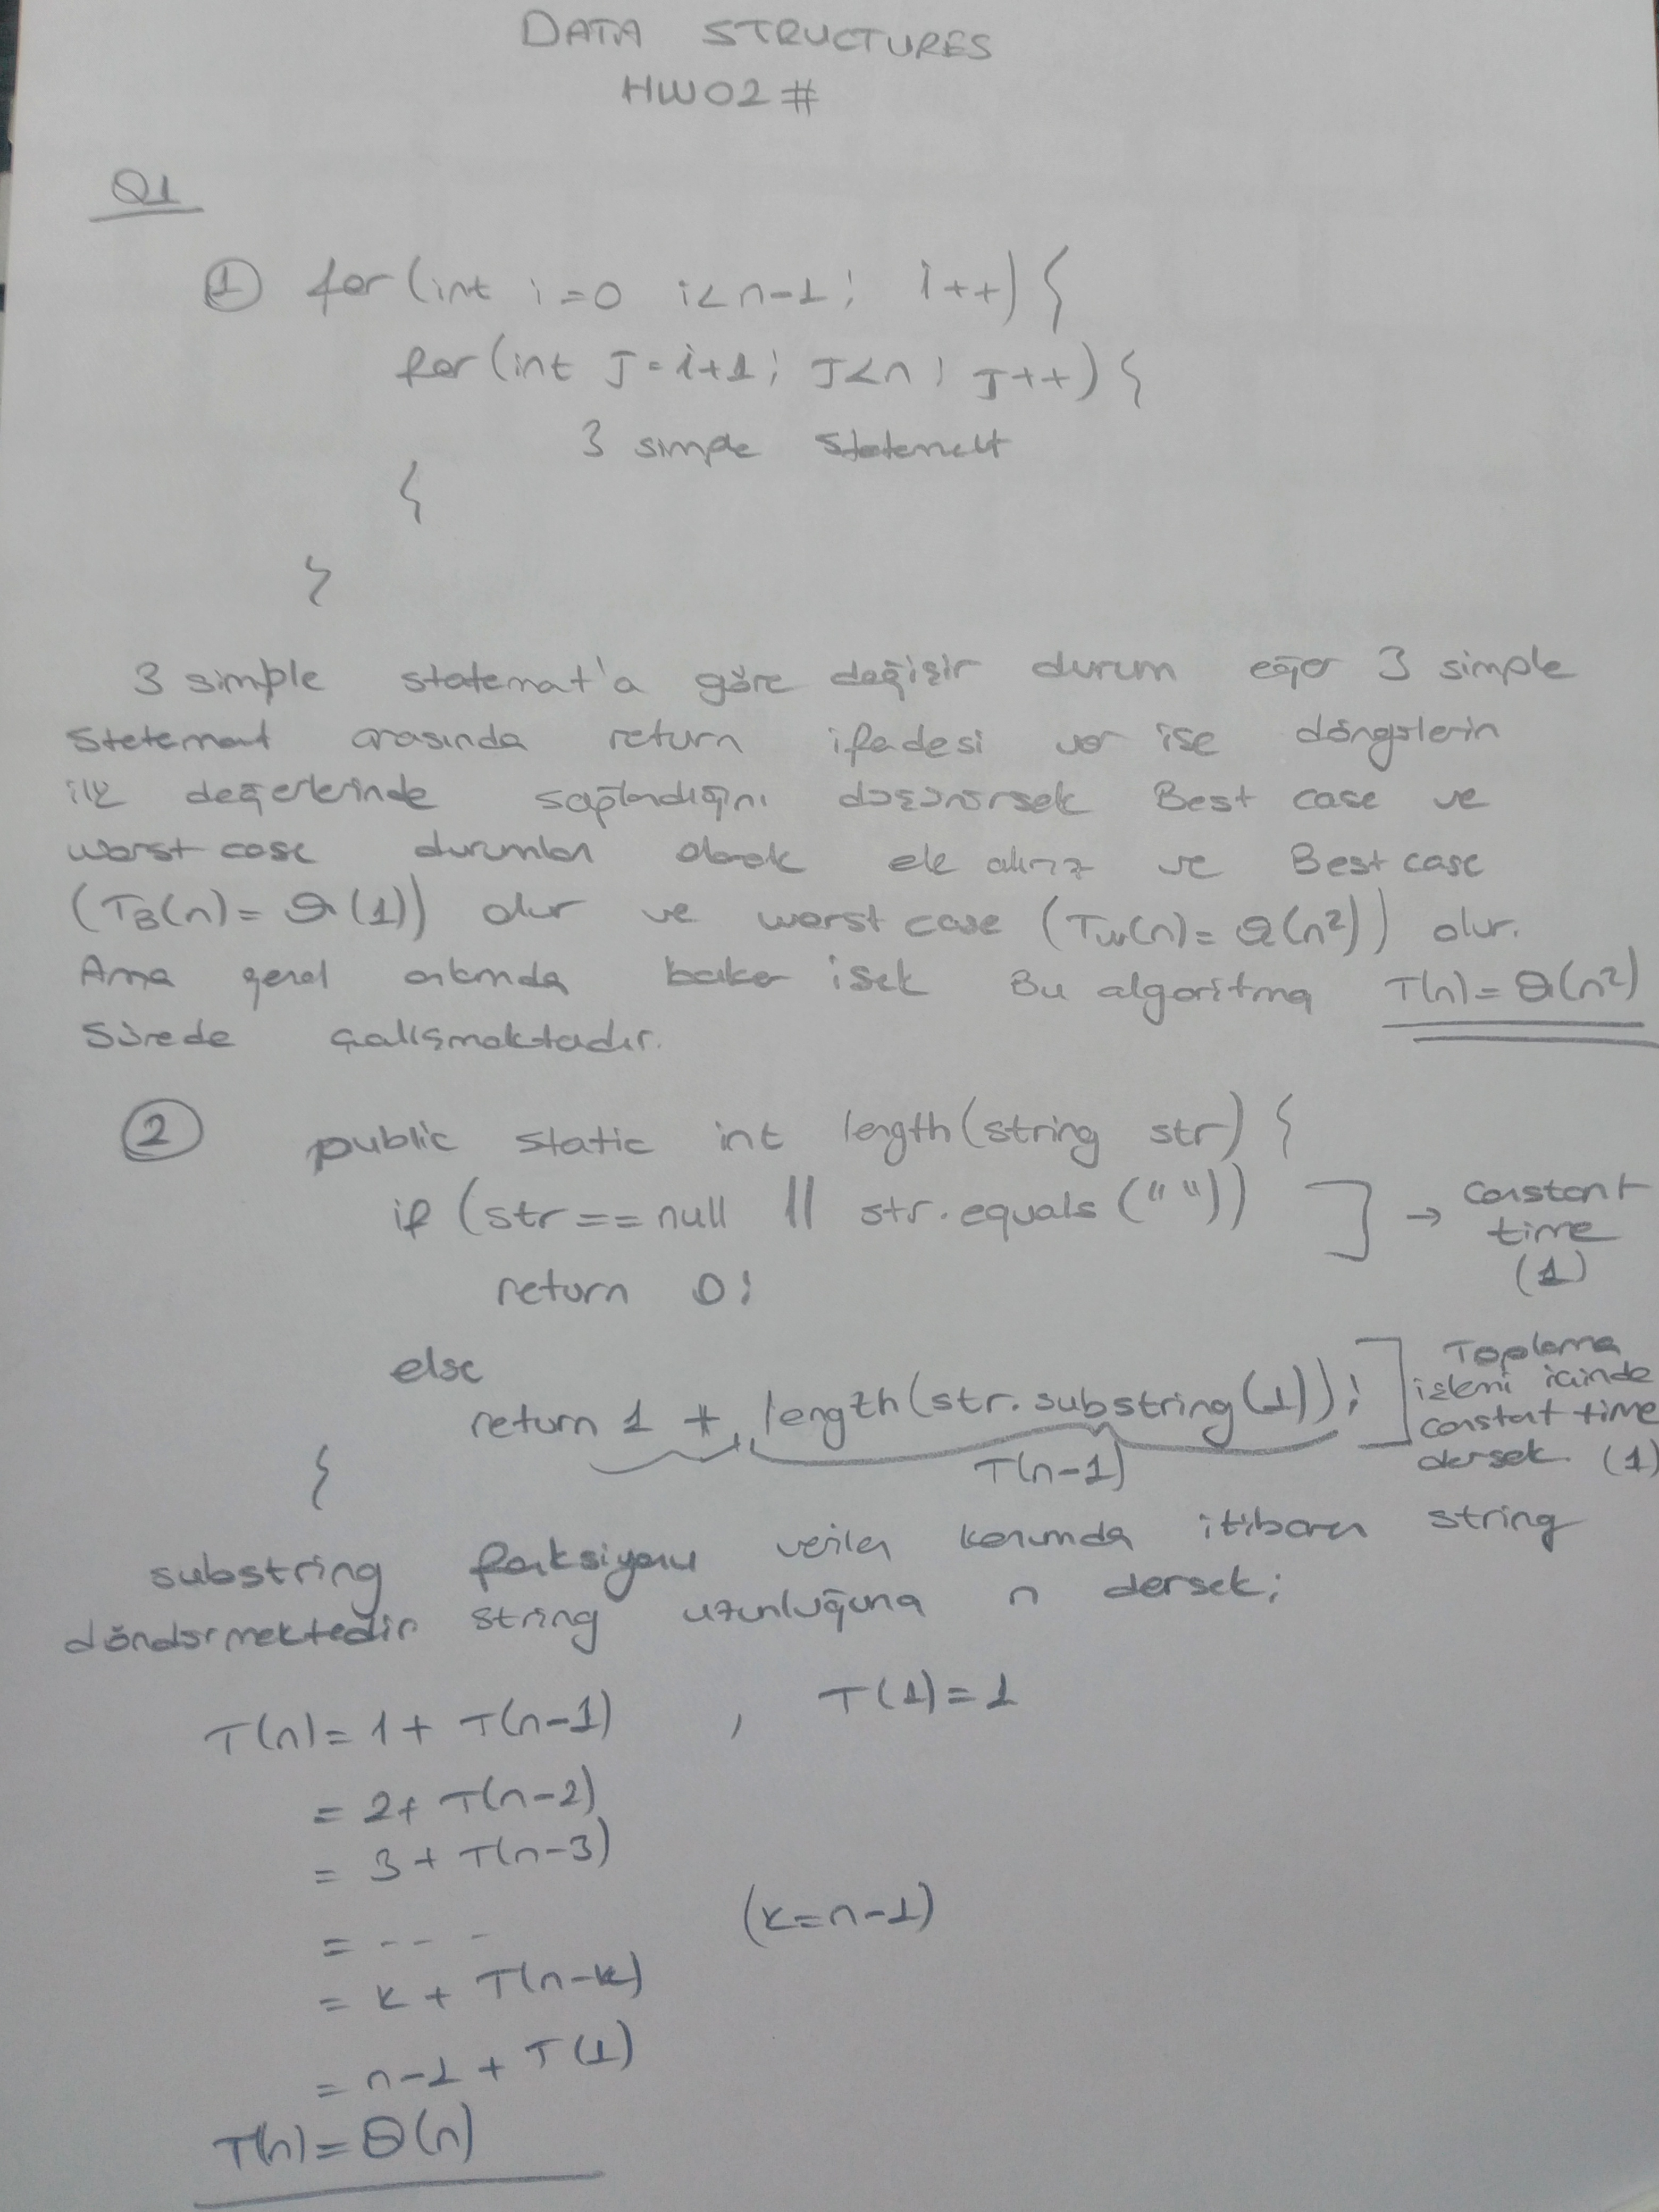 DATA STRUCTURES
HW02#
Q1
① for(int i=0 i<n-1; i++) {
for(int J=i+1; J<n; J++) {
3 simple statement
{
}
3 simple statemat'a göre değişir durum eğer 3 simple
statement arasında return ifadesi var ise döngülerin
ilk değerlerinde sağlandığını düşünürsek Best case ve
worst case durumları olarak ele alırız ve Best case
(TB(n) = Θ(1)) olur ve worst case (Tw(n) = Θ(n²)) olur.
Ama genel anlamda bakar isek Bu algoritma T(n) = Θ(n²)
Sürede çalışmaktadır.
② public static int length(string str) {
if (str == null || str.equals(" ")) ] → constant
time
(1)
return 0;
else
return 1 + length(str.substring(1)); ] Toplama
işlemi içinde
constant time
dersek (1)
T(n-1)
{
substring fonksiyonu verilen konumda itibaren string
döndürmektedir string uzunluğuna n dersek;
T(n) = 1 + T(n-1) , T(1) = 1
= 2 + T(n-2)
= 3 + T(n-3)
= - - - -
(k=n-1)
= k + T(n-k)
= n-1 + T(1)
T(n) = Θ(n)